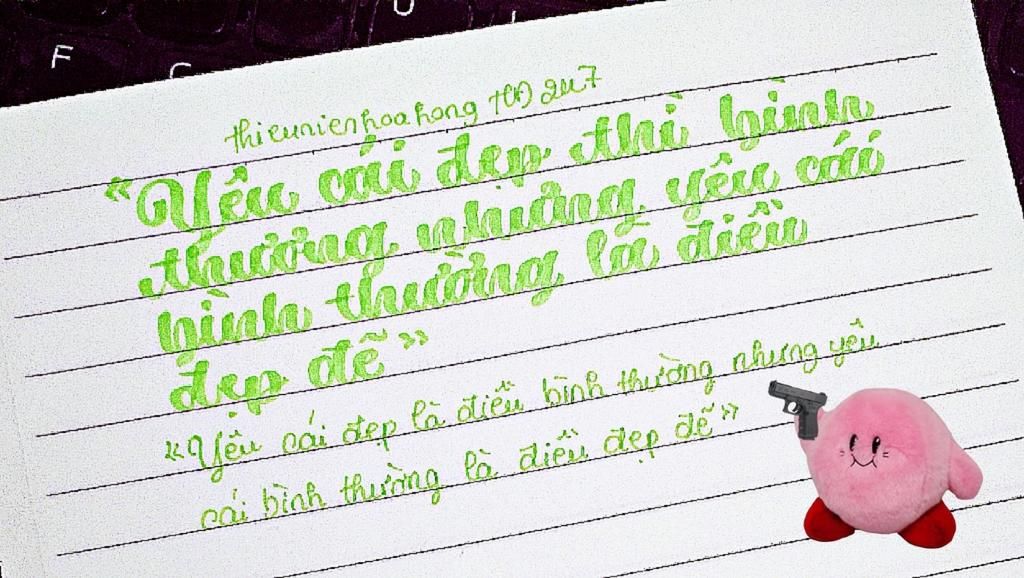 F
thieunienhoahong
“Yêu cái đẹp thì bình
thường nhưng yêu cái
bình thường là điều
đẹp đẽ”
“Yêu cái đẹp là điều bình thường nhưng yêu
cái bình thường là điều đẹp đẽ”